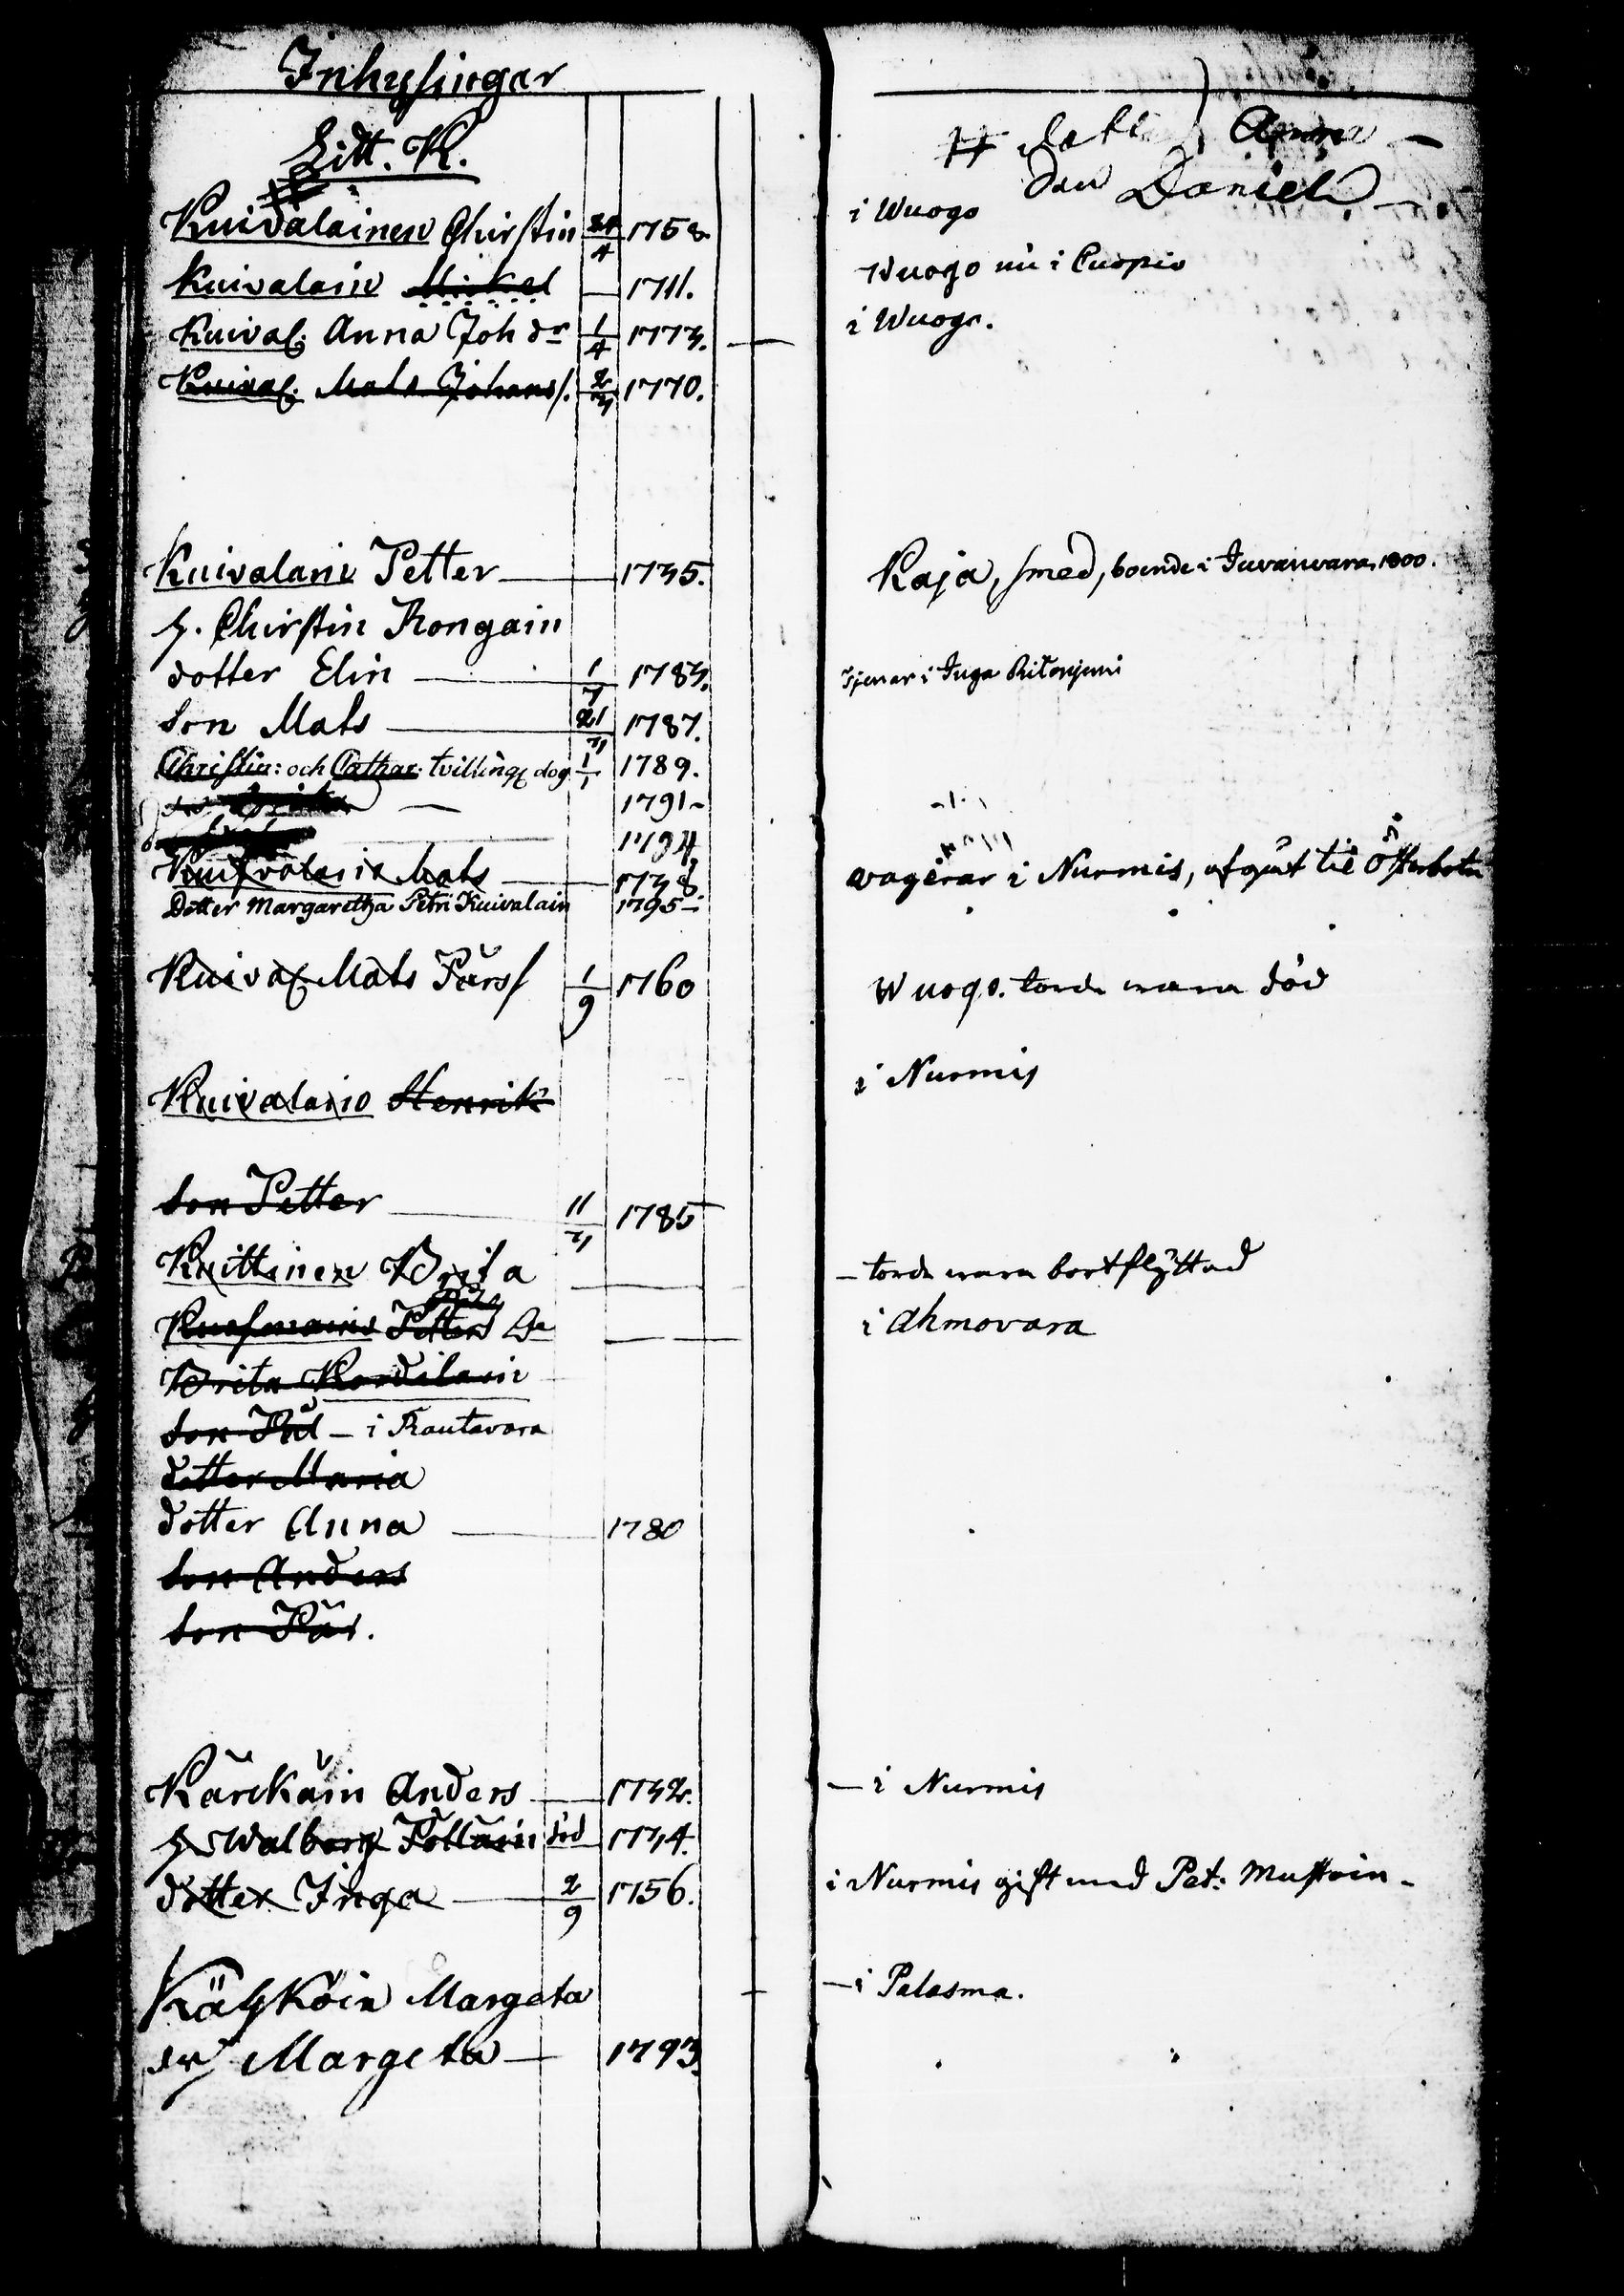 Inhysingar
Litt. K.
# Dotter Anna —
Son Daniel —
Kuivalainen Chirstin 24/4 1758. i Wuogo
Kuivalain Mickel — 1711. Wuogo nu i Cuopio
Kuival: Anna Joh dr 1/4 1773. — i Wuogo.
Kuival: Mats Johans/. 2/3 1770.
Kuivalain Petter — 1735. Kaja, smed, boende i Juvanvara 1800.
H. Chirstin Rongain
dotter Elin — 1/7 1783. Tjenar i Juga
Son Mats — 21/3 1787.
Christin: och Cathar: tvilling dog 1/1 1789.
— 1791 —
— 1794
Kuivalain Mats — 1738. vagerar i Nurmis, afgåt til Österbotn
Dotter Margaretha Petri Kuivalain 1795 —
Kuival: Mats Pärs/ 1/9 1760 Wuogo. torde wara död
Kuivalain Henrik i Nurmis
Son Petter — 11/3 1785
Kuittinen Brita — — torde wara bortflyttad
Petter — i Ahmovara
Brita Kordilain
Son Pål — i Rautavara
dotter Maria
dotter Anna — 1780
Son Anders
Son Pär.
Kärckäin Anders — 1732. — i Nurmis
H. Walborg död 1734.
dotter Inga — 2/9 1756. i Nurmis gift med Pet: Mustoin —
Margeta — i Palasma.
dr Margeta — 1793.